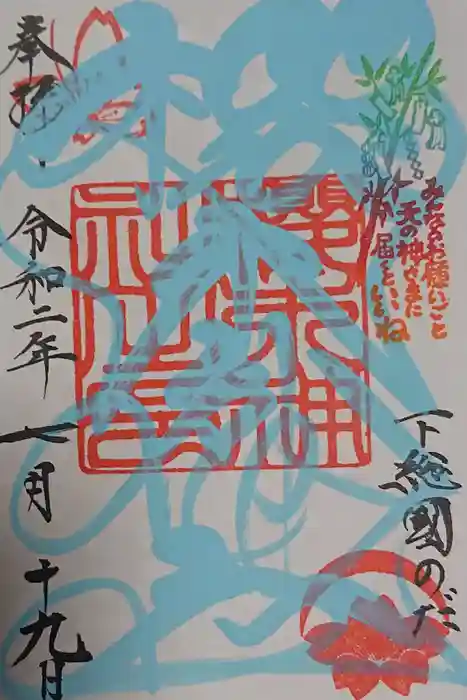 みんなのお願いごと
天の神さまに
届くといいね
下総國のだ
櫻木神
社之印
奉拝
令和二年 七月 十九日